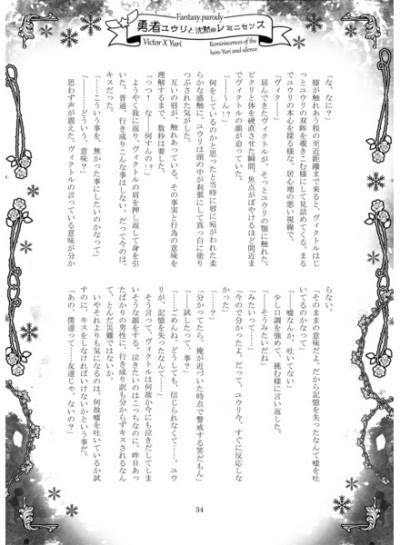 Fantasy parody
勇者ユウリと沈黙のレミニセンス
Victor X Yuri
Reminiscences of the
hero Yuri and silence
「な、なに?」
膝が触れあう程の至近距離まで来ると、ヴィクトルはじ
っとユウリの双眸を覗きこむ様にして見詰めてくる。まる
でユウリの本心を探る様な、居心地の悪い視線で。
「ヴィク――」
屈んできたヴィクトルが、そっとユウリの顎に触れた。
ビクリと体を硬直させた瞬間、焦点がぼやけるほど間近ま
でヴィクトルの顔が迫っていた。
「――ん!」
何をしているのかと思ったと当時に唇に宛がわれた柔
らかな感触に、ユウリは頭の中が刹那にして真っ白に塗り
つぶされた気がした。
互いの唇が、触れあっている。その事実と行為の意味を
理解するまで、数秒は要した。
「っつ! な――、何すんの!?」
ようやく我に返り、ヴィクトルの肩を押し返して身を引
いた。普通、行き成りこんな事はしない。だって今のは、
キスだった。
「……こういう事を、無かった事にしたいのかなって」
「……どういう、意味?」
思わず声が震えた。ヴィクトルの言っている意味が分か
らない。
「そのままの意味だよ。だから記憶を失ったなんて嘘を吐
いてるのかなって」
「――嘘なんか、吐いてない」
少し口調を強めて、挑む様に言い返した。
「そうみたいだね」
「みたいって……」
「今ので分かったよ。だって、ユウリ今、すぐに反応しな
かった」
「……?」
「分かってたら、俺が近づいた時点で警戒する筈だもん」
「――試したって、事?」
「……ごめんね。どうしても、信じられなくて……。ユウ
リが、記憶を失ったなんて……」
そう言って、ヴィクトルは何故か今にも泣きだしてしま
いそうな顔をする。泣きたいのはこっちなのに。昨日あっ
たばかりの男性に、行き成り訳も分からずキスされるなん
て、とんだ災難ではないか。
いやそれよりも気になるのは、何故嘘を吐いているか試
すのに、キスをしなければいけないかという事だ。
「あの、僕達って……友達じゃ、ないの?」
34